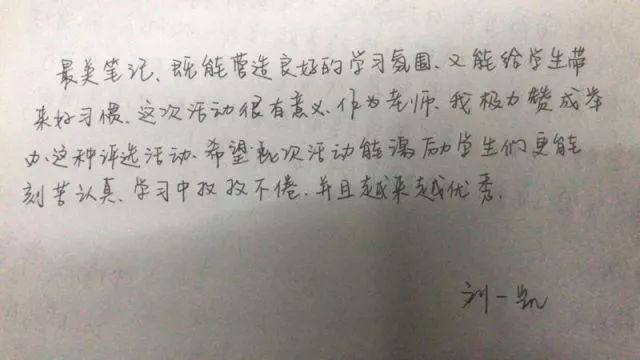 最美笔记、既能营造良好的学习氛围、又能给学生带
来好习惯、这次活动很有意义、作为老师、我极力赞成举
办这种评选活动、希望就次活动能激励学生们更能
刻苦认真、学习中孜孜不倦、并且越来越优秀、
刘一凯